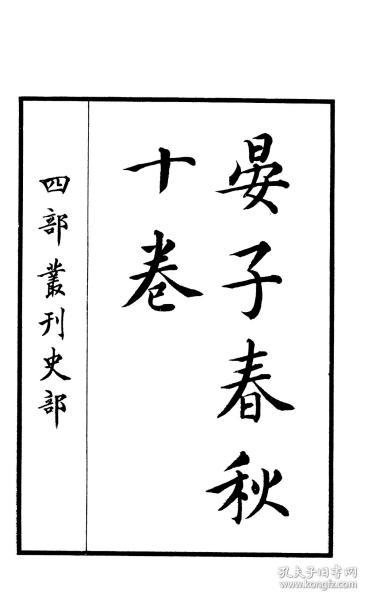 晏子春秋
十卷
四部叢刊史部
孔夫子旧书网
www.kongfz.com